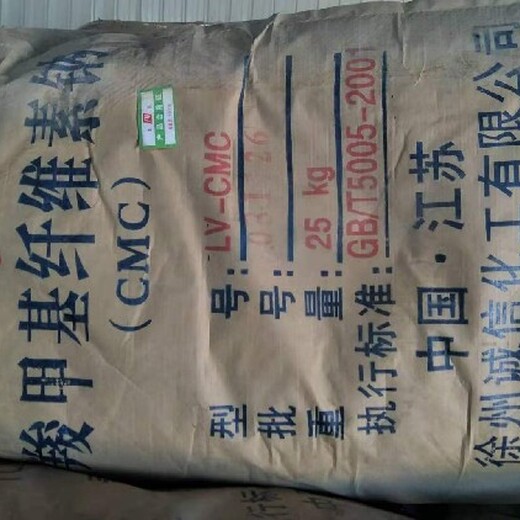 羧甲基纤维素钠
(CMC)
型 号: LV-CMC
批 号: 03126
重 量: 25 kg
执行标准: GB/T5005-2001
中国·江苏
徐州诚信化工有限公司
产品合格证